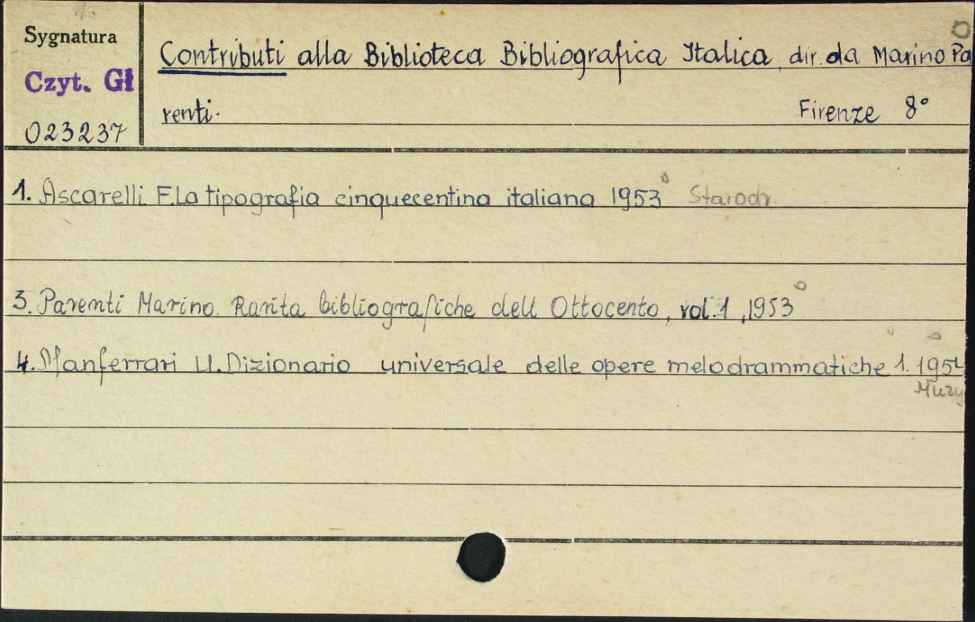 Sygnatura
Czyt. Gł
023237
Contributi alla Biblioteca Bibliografica Italica, dir. da Marino Pa
renti. Firenze 8°
1. Ascarelli F. La tipografia cinquecentina italiana 1953 Starodr
3. Parenti Marino. Rarita bibliografiche dell Ottocento, vol. 1, 1953
4. Manferrari U. Dizionario universale delle opere melodrammatiche 1. 1954
Muzy